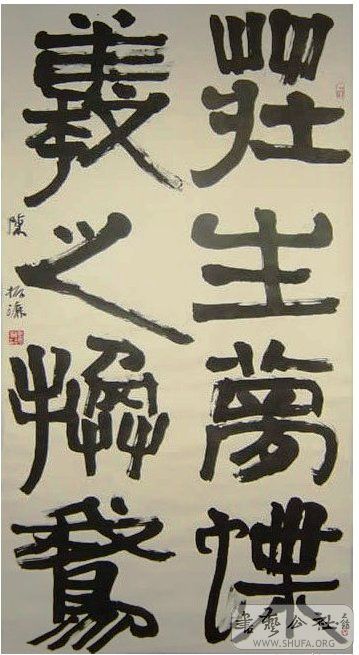 莊生夢蝶
羲之換鵞
陳振濂
書藝公社
WWW.SHUFA.ORG